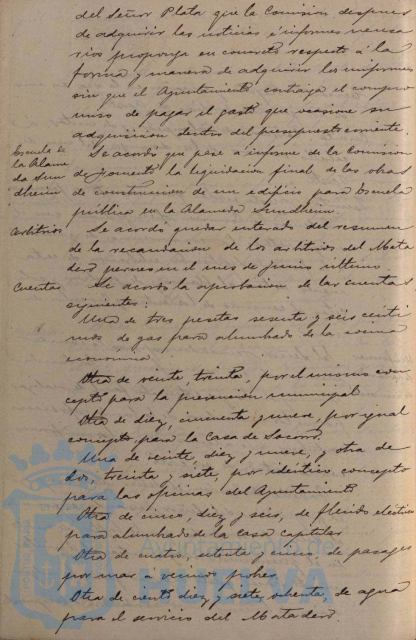 del Señor Plata que la Comision despues
de adquirir las noticias é informes necesa
rios proponga en concreto respecto á la
forma y manera de adquirir los uniformes
sin que el Ayuntamiento contraiga el compro
miso de pagar el gasto que ocasione su
adquisicion dentro del presupuesto corriente.
Escuela de
la Alame
da Sun
dheim
Se acordó que pase á informe de la Comision
de Fomento la liquidacion final de las obras
de construccion de un edificio para Escuela
pública en la Alameda Sundheim.
Arbitrios
Se acordó quedar enterado del resumen
de la recaudacion de los arbitrios del Mata
dero en el mes de Junio último
Cuentas
Se acordó la aprobacion de las cuentas
siguientes:
Una de tres pesetas sesenta y seis cénti
mos de gas para alumbrado de la cocina
económica
Otra de veinte, treinta, por el mismo con
cepto para la prevencion municipal
Otra de diez, cincuenta y nueve, por igual
concepto para la Casa de Socorro.
Una de veinte, diez y nueve, y otra de
dos, treinta y siete, por idéntico concepto
para las oficinas del Ayuntamiento
Otra de cinco, diez y seis, de fluido eléctrico
para alumbrado de la casa capitular
Otra de cuatro, setenta y cinco, de pasages
por mar a vecinos pobres
Otra de ciento diez y siete, ochenta, de agua
para el servicio del Matadero.
Ayuntamiento de
HUELVA